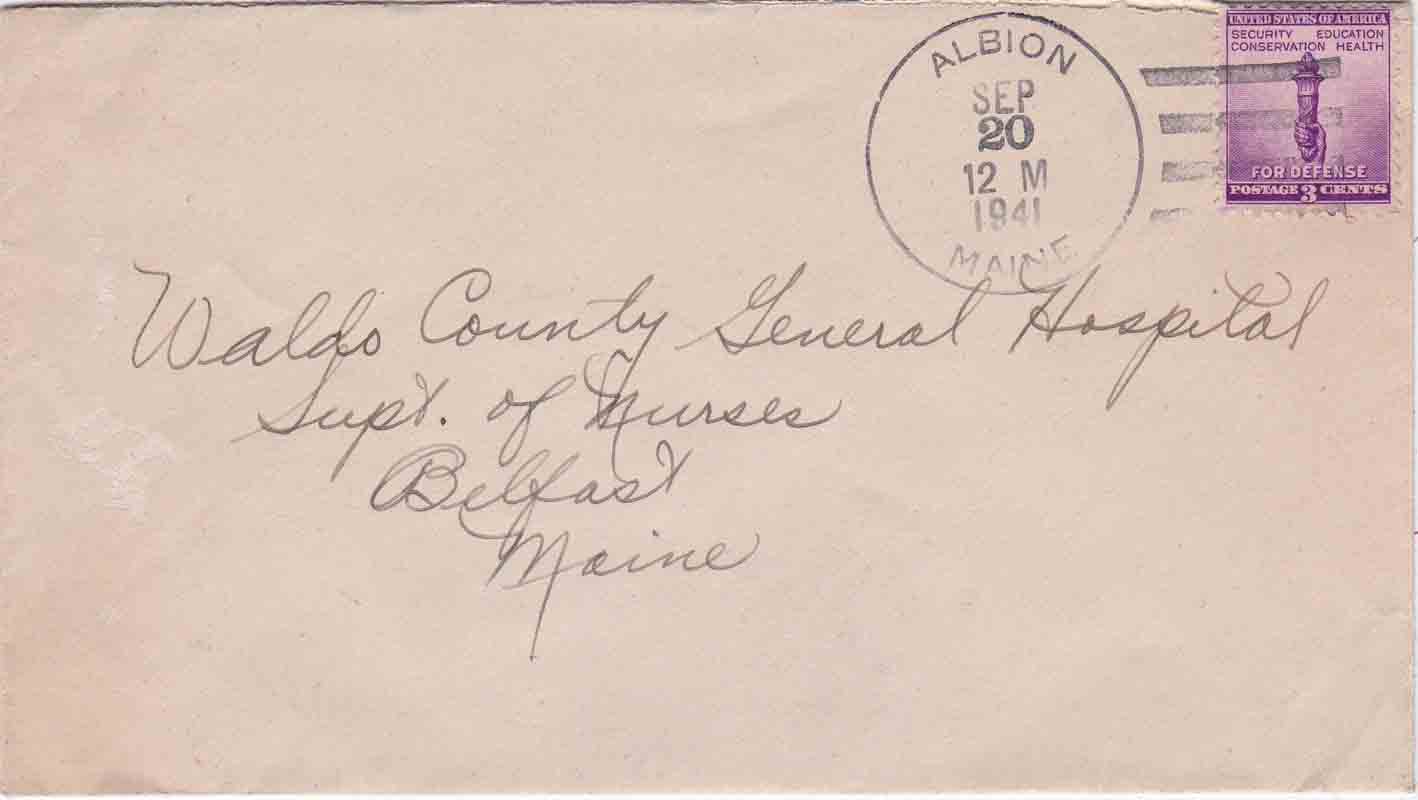 ALBION
SEP
20
12 M
1941
MAINE
UNITED STATES OF AMERICA
SECURITY EDUCATION
CONSERVATION HEALTH
FOR DEFENSE
POSTAGE 3 CENTS
Waldo County General Hospital
Supt. of Nurses
Belfast
Maine